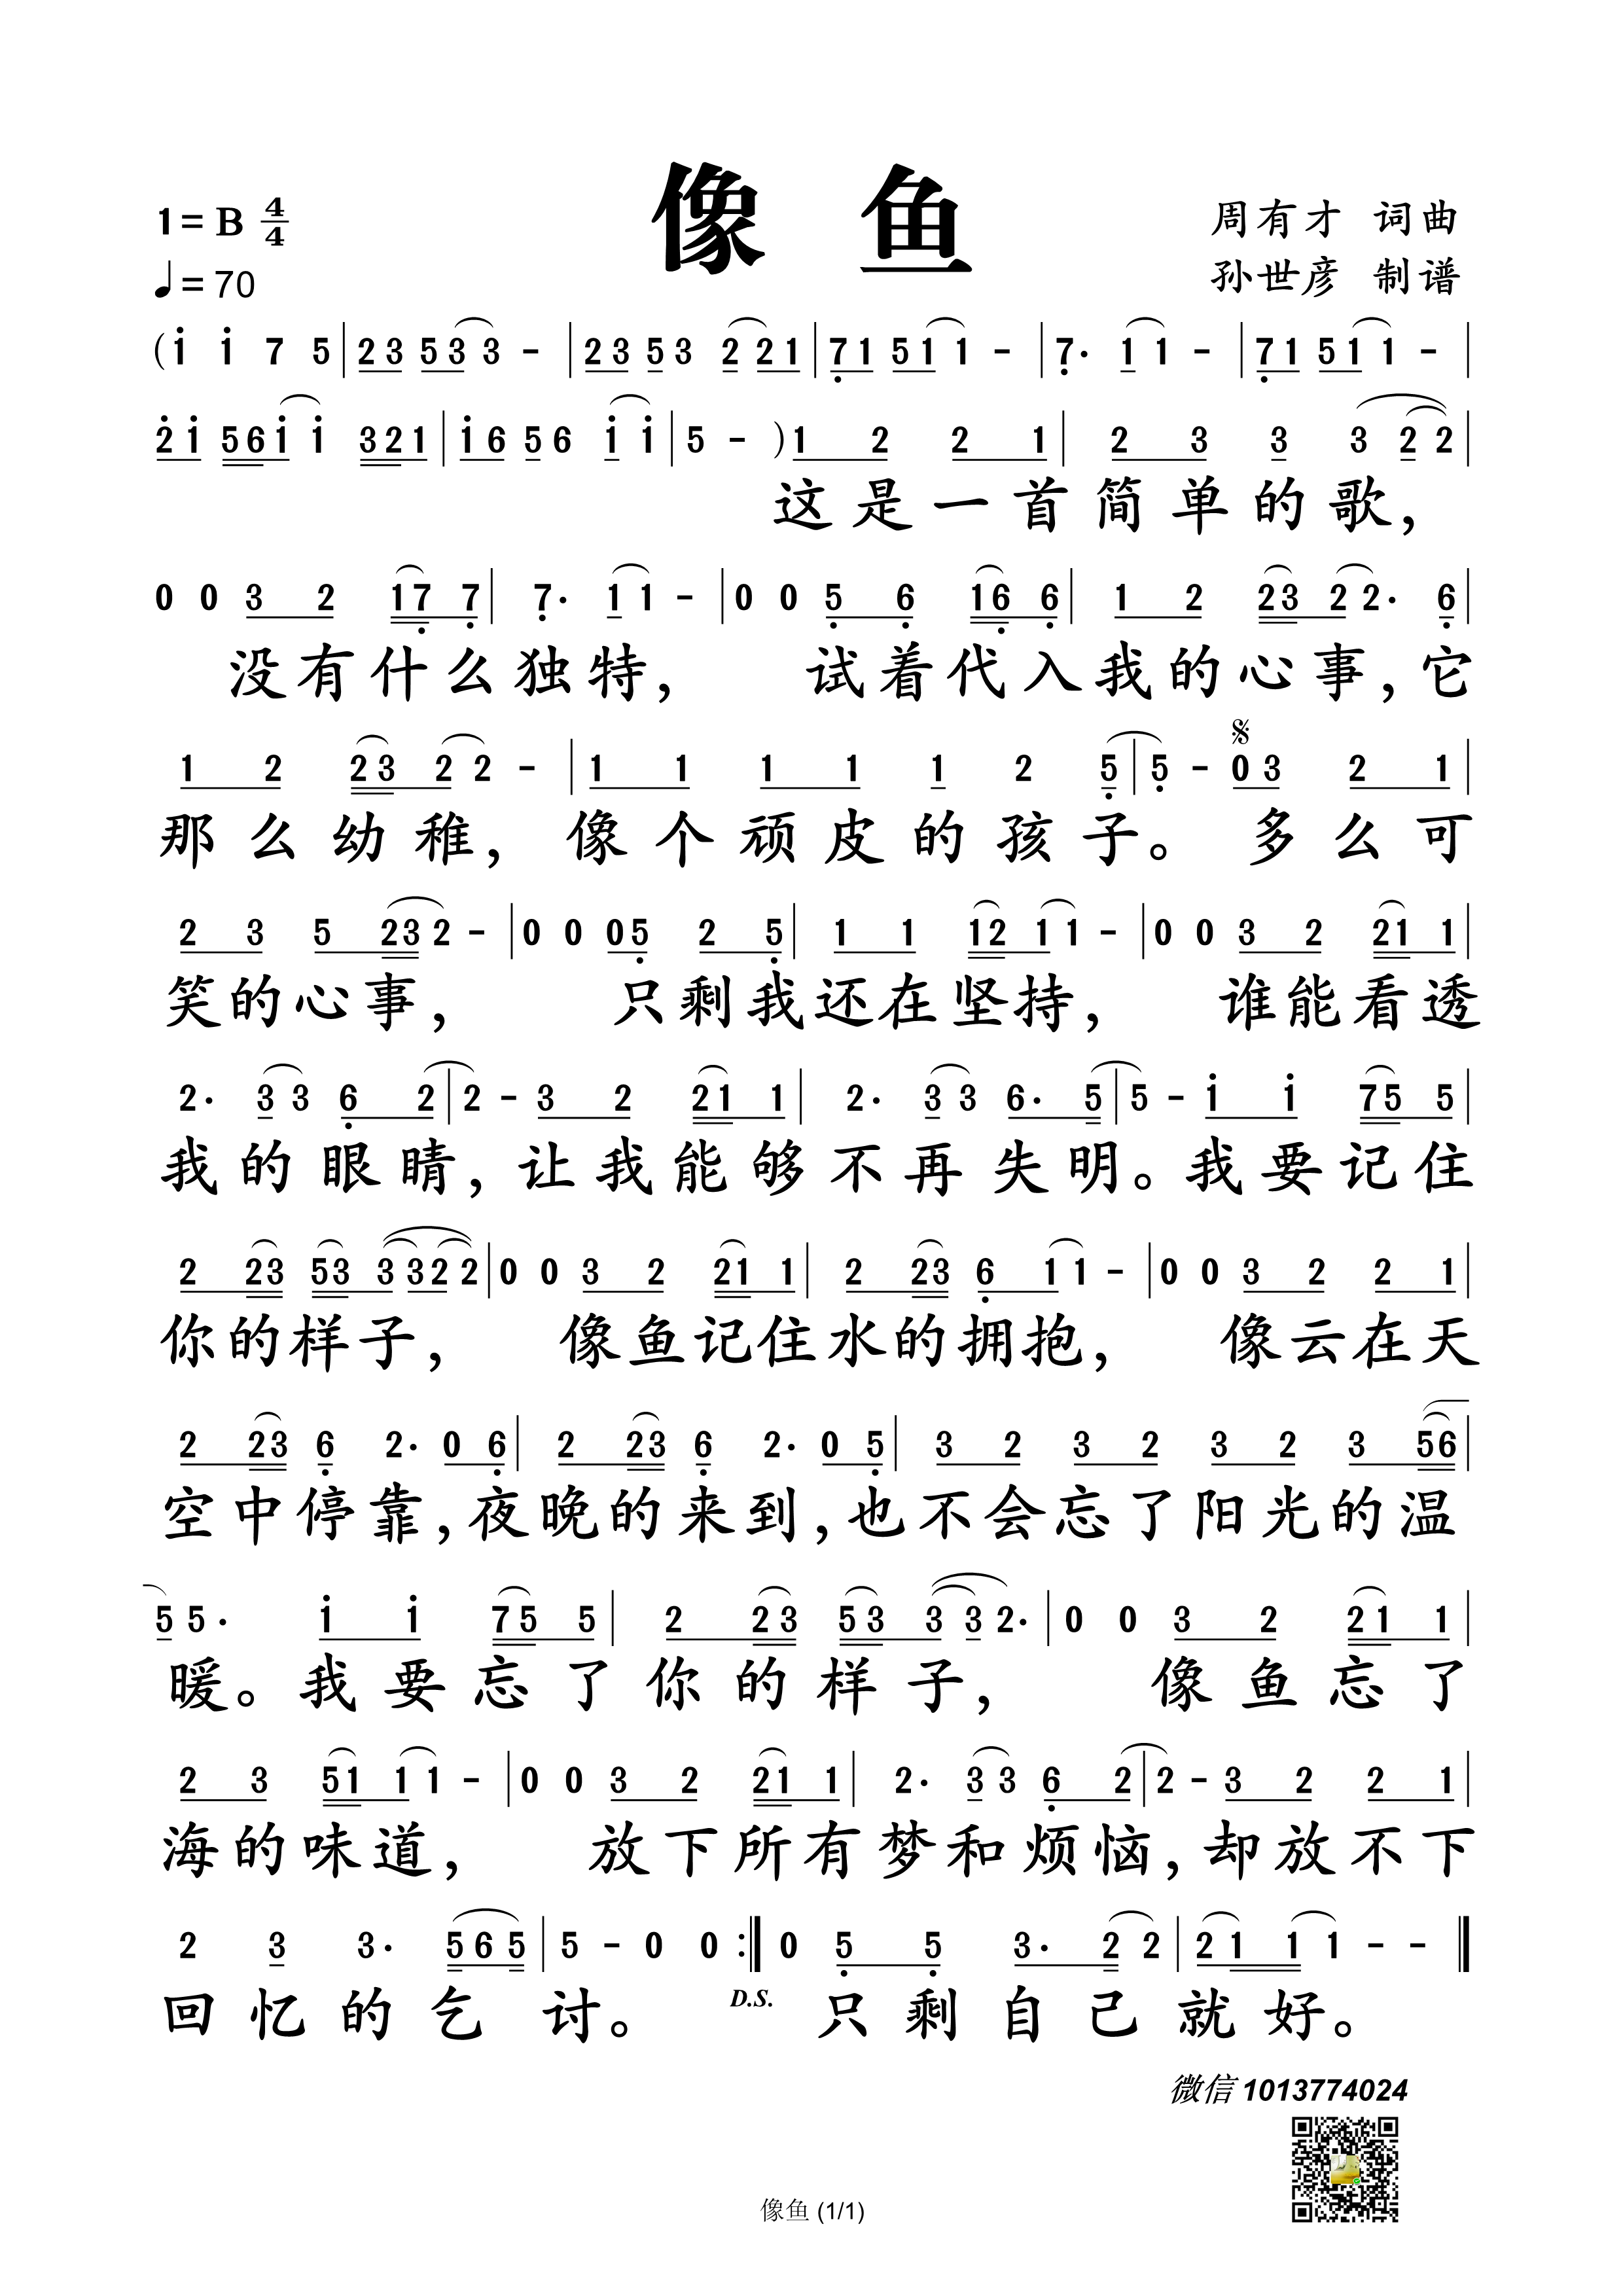 像 鱼
1 = B 4/4
♩ = 70
周有才 词曲
孙世彦 制谱
(i̇ i̇ 7 5 | 2 3 5 3 3 - | 2 3 5 3 2 2 1 | 7̣ 1 5 1 1 - | 7̣· 1 1 - | 7̣ 1 5 1 1 - |
2̇ i̇ 5 6 i̇ i̇ 3 2 1 | i̇ 6 5 6 i̇ i̇ | 5 - ) 1 2 2 1 | 2 3 3 3 2 2 |
这是一首简单的歌，
0 0 3 2 1 7̣ 7̣ | 7̣· 1 1 - | 0 0 5̣ 6̣ 1 6̣ 6̣ | 1 2 2 3 2 2· 6̣ |
没有什么独特， 试着代入我的心事，它
1 2 2 3 2 2 - | 1 1 1 1 1 2 5̣ | 5̣ - 𝄋 0 3 2 1 |
那么幼稚，像个顽皮的孩子。 多么可
2 3 5 2 3 2 - | 0 0 0 5̣ 2 5̣ | 1 1 1 2 1 1 - | 0 0 3 2 2 1 1 |
笑的心事， 只剩我还在坚持， 谁能看透
2· 3 3 6̣ 2 | 2 - 3 2 2 1 1 | 2· 3 3 6· 5 | 5 - i̇ i̇ 7 5 5 |
我的眼睛，让我能够不再失明。我要记住
2 2 3 5 3 3 3 2 2 | 0 0 3 2 2 1 1 | 2 2 3 6̣ 1 1 - | 0 0 3 2 2 1 |
你的样子， 像鱼记住水的拥抱， 像云在天
2 2 3 6̣ 2· 0 6̣ | 2 2 3 6̣ 2· 0 5̣ | 3 2 3 2 3 2 3 5 6 |
空中停靠，夜晚的来到，也不会忘了阳光的温
5 5· i̇ i̇ 7 5 5 | 2 2 3 5 3 3 3 2· | 0 0 3 2 2 1 1 |
暖。我要忘了你的样子， 像鱼忘了
2 3 5 1 1 1 - | 0 0 3 2 2 1 1 | 2· 3 3 6̣ 2 | 2 - 3 2 2 1 |
海的味道， 放下所有梦和烦恼，却放不下
2 3 3· 5 6 5 | 5 - 0 0 :‖ 0 5̣ 5̣ 3· 2 2 | 2 1 1 1 - - ‖
回忆的乞讨。 D.S. 只剩自己就好。
微信 1013774024
像鱼 (1/1)